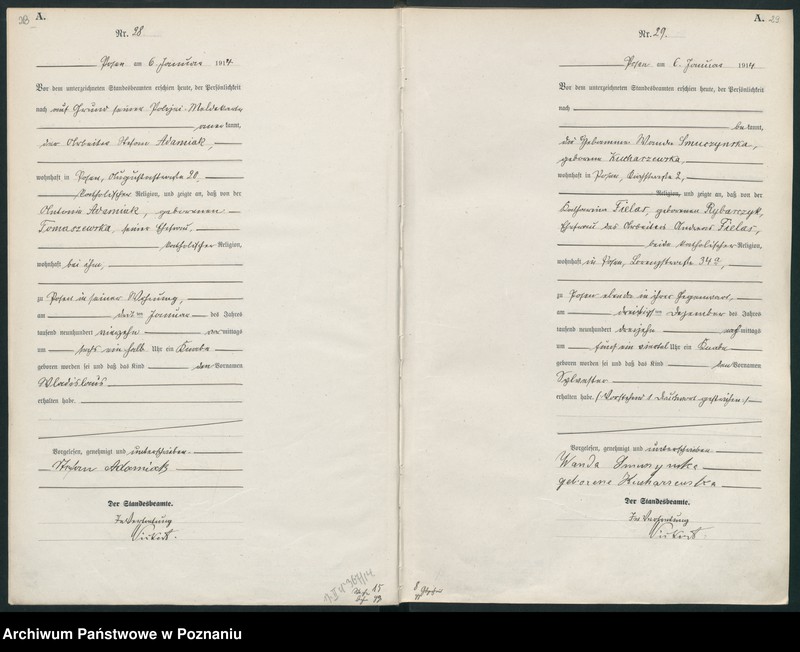 A.
Nr. 28
Posen am 6. Januar 1914
Vor dem unterzeichneten Standesbeamten erschien heute, der Persönlichkeit
nach auf Grund seiner Polizei-Meldekarte
anerkannt,
der Arbeiter Stefan Adamiak,
wohnhaft in Posen, Augustastraße 20
katholischer Religion, und zeigte an, daß von der
Antonie Adamiak, geborenen
Tomaszewska, seiner Ehefrau,
katholischer Religion,
wohnhaft bei ihm,
zu Posen in seiner Wohnung,
am Januar des Jahres
tausend neunhundert vierzehn vormittags
um sechs ein halb Uhr ein Knabe
geboren worden sei und daß das Kind den Vornamen
Wladislaus
erhalten habe.
Vorgelesen, genehmigt und unterschrieben
Stefan Adamiak
Der Standesbeamte.
In Vertretung
A. 29
Nr. 29.
Posen am 6. Januar 1914
Vor dem unterzeichneten Standesbeamten erschien heute, der Persönlichkeit
nach
bekannt,
die Hebamme Wanda Smuszynska,
geborene Kucharzewska,
wohnhaft in Posen, 2,
Religion, und zeigte an, daß von der
Katharina Fielas, geborenen Rybarczyk,
Ehefrau des Arbeiters Andreas Fielas,
beide katholischer Religion,
wohnhaft in Posen, 34a,
zu Posen ebenda in ihrer Gegenwart,
am dreißigsten Dezember des Jahres
tausend neunhundert dreizehn nachmittags
um fünf ein viertel Uhr ein Knabe
geboren worden sei und daß das Kind den Vornamen
Sylvester
erhalten habe. (Vorstehend 1 Druckwort gestrichen.)
Vorgelesen, genehmigt und unterschrieben
Wanda Smuszynska
geborene Kucharzewska
Der Standesbeamte.
In Vertretung
Archiwum Państwowe w Poznaniu